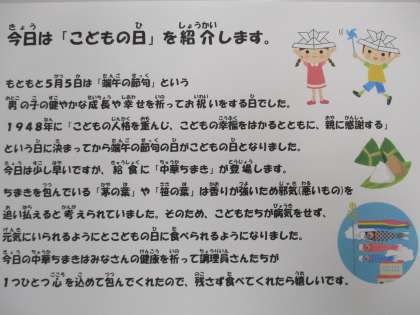 今日は「こどもの日」を紹介します。
もともと5月5日は「端午の節句」という
男の子の健やかな成長や幸せを祈ってお祝いをする日でした。
1948年に「こどもの人格を重んじ、こどもの幸福をはかるとともに、親に感謝する」
という日に決まってから端午の節句の日がこどもの日となりました。
今日は少し早いですが、給食に「中華ちまき」が登場します。
ちまきを包んでいる「茅の葉」や「笹の葉」は香りが強いため邪気(悪いもの)を
追い払えると考えられていました。そのため、こどもたちが病気をせず、
元気にいられるようにとこどもの日に食べられるようになりました。
今日の中華ちまきはみなさんの健康を祈って調理員さんたちが
1つひとつ心を込めて包んでくれたので、残さず食べてくれたら嬉しいです。